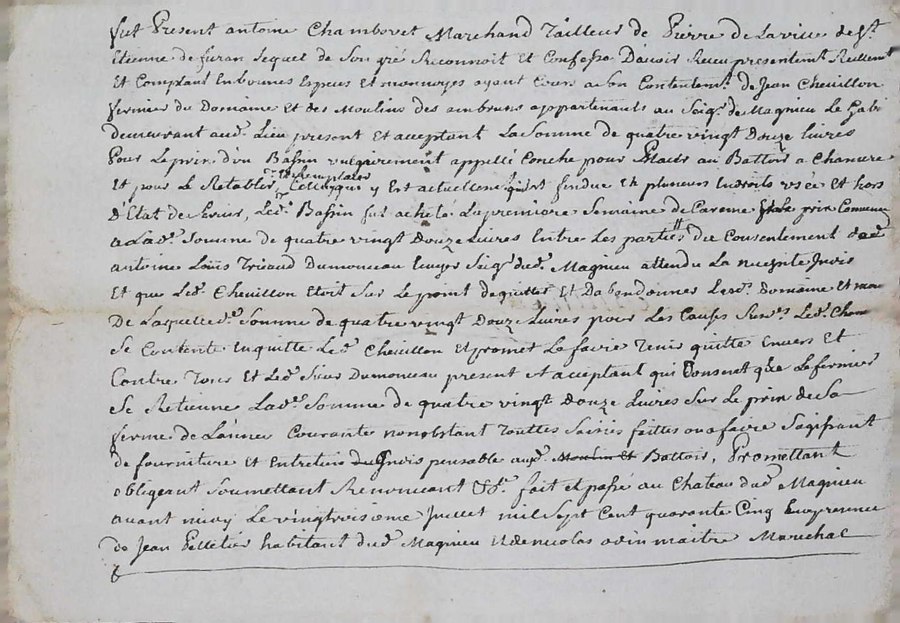 fut Present antoine Chambovet Marchand Tailleur de Pierre de Larive de St.
Etienne de furan Lequel de Son gré Reconnoit et Confesse D'avoir Receu presentemt. Reellemt
Et Comptant Enbonnes Especes et monnoyes ayant Cours a son Contentemt. de Jean Chevillon
fermier du Domaine et des Moulins des ambrunes appartenants au Seigr. de Magnieu Le Gabi
demeurant aud. Lieu present et acceptant La Somme de quatre vingt Douze Livres
Pour Le prix d'un Bassin vulgairement appellé Conche pour Placer au Battoir a Chanvre
Et pour Le Retablir, et Remplacer Celuy qui y Est actuellemt. qui est fendue en plusieurs Endroits usée et hors
D'Etat de Servir, Led. Bassin fut acheté La premiere Semaine de Careme Et Le prix Convenu
a Lad. Somme de quatre vingt Douze Livres Entre Les parties du Consentement de
antoine Loüis Trieaud Dumonceau Ecuyer Seigr. dud. Magnieu attendu La necessite
Et que Led. Chevillon Etoit Sur Le point de quitter Et D'abandonner Lesd. Domaine et
De Laquelle d. Somme de quatre vingt Douze Livres pour Les Causes Susd. Led.
Se Contente Enquitte Led. Chevillon Et promet Le faire Tenir quitte Envers Et
Contre Tous Et Led. Sieur Dumonceau present et acceptant qui Consent que Le fermier
Se Retienne Lad. Somme de quatre vingt Douze Livres Sur Le prix de Sa
ferme de L'année Courante nonobstant Touttes Saisies faittes ou a faire Sagissant
de fourniture et Entretien Indispensable aud. Moulin Et Battoir, Promettant
obligeant Soumettant Renoncant &c. fait et passé au Chateau dud. Magnieu
avant midy Le vingtroisieme Juillet mil Sept Cent quarante Cinq En presence
de Jean Pelletier habitant dud. Magnieu Et de nicolas odin maitre Marechal